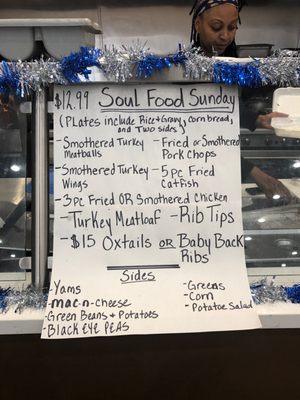 $12.99 Soul Food Sunday
(Plates include Rice+Gravy, corn bread,
and Two sides)
-Smothered Turkey Meatballs
-Fried or Smothered Pork Chops
-Smothered Turkey Wings
-5pc Fried Catfish
-3pc Fried OR Smothered Chicken
-Turkey Meatloaf -Rib Tips
-$15 Oxtails OR Baby Back Ribs
Sides
-Yams
-mac-n-cheese
-Green Beans + Potatoes
-Black EYE PEAS
-Greens
-Corn
-Potatoe Salad